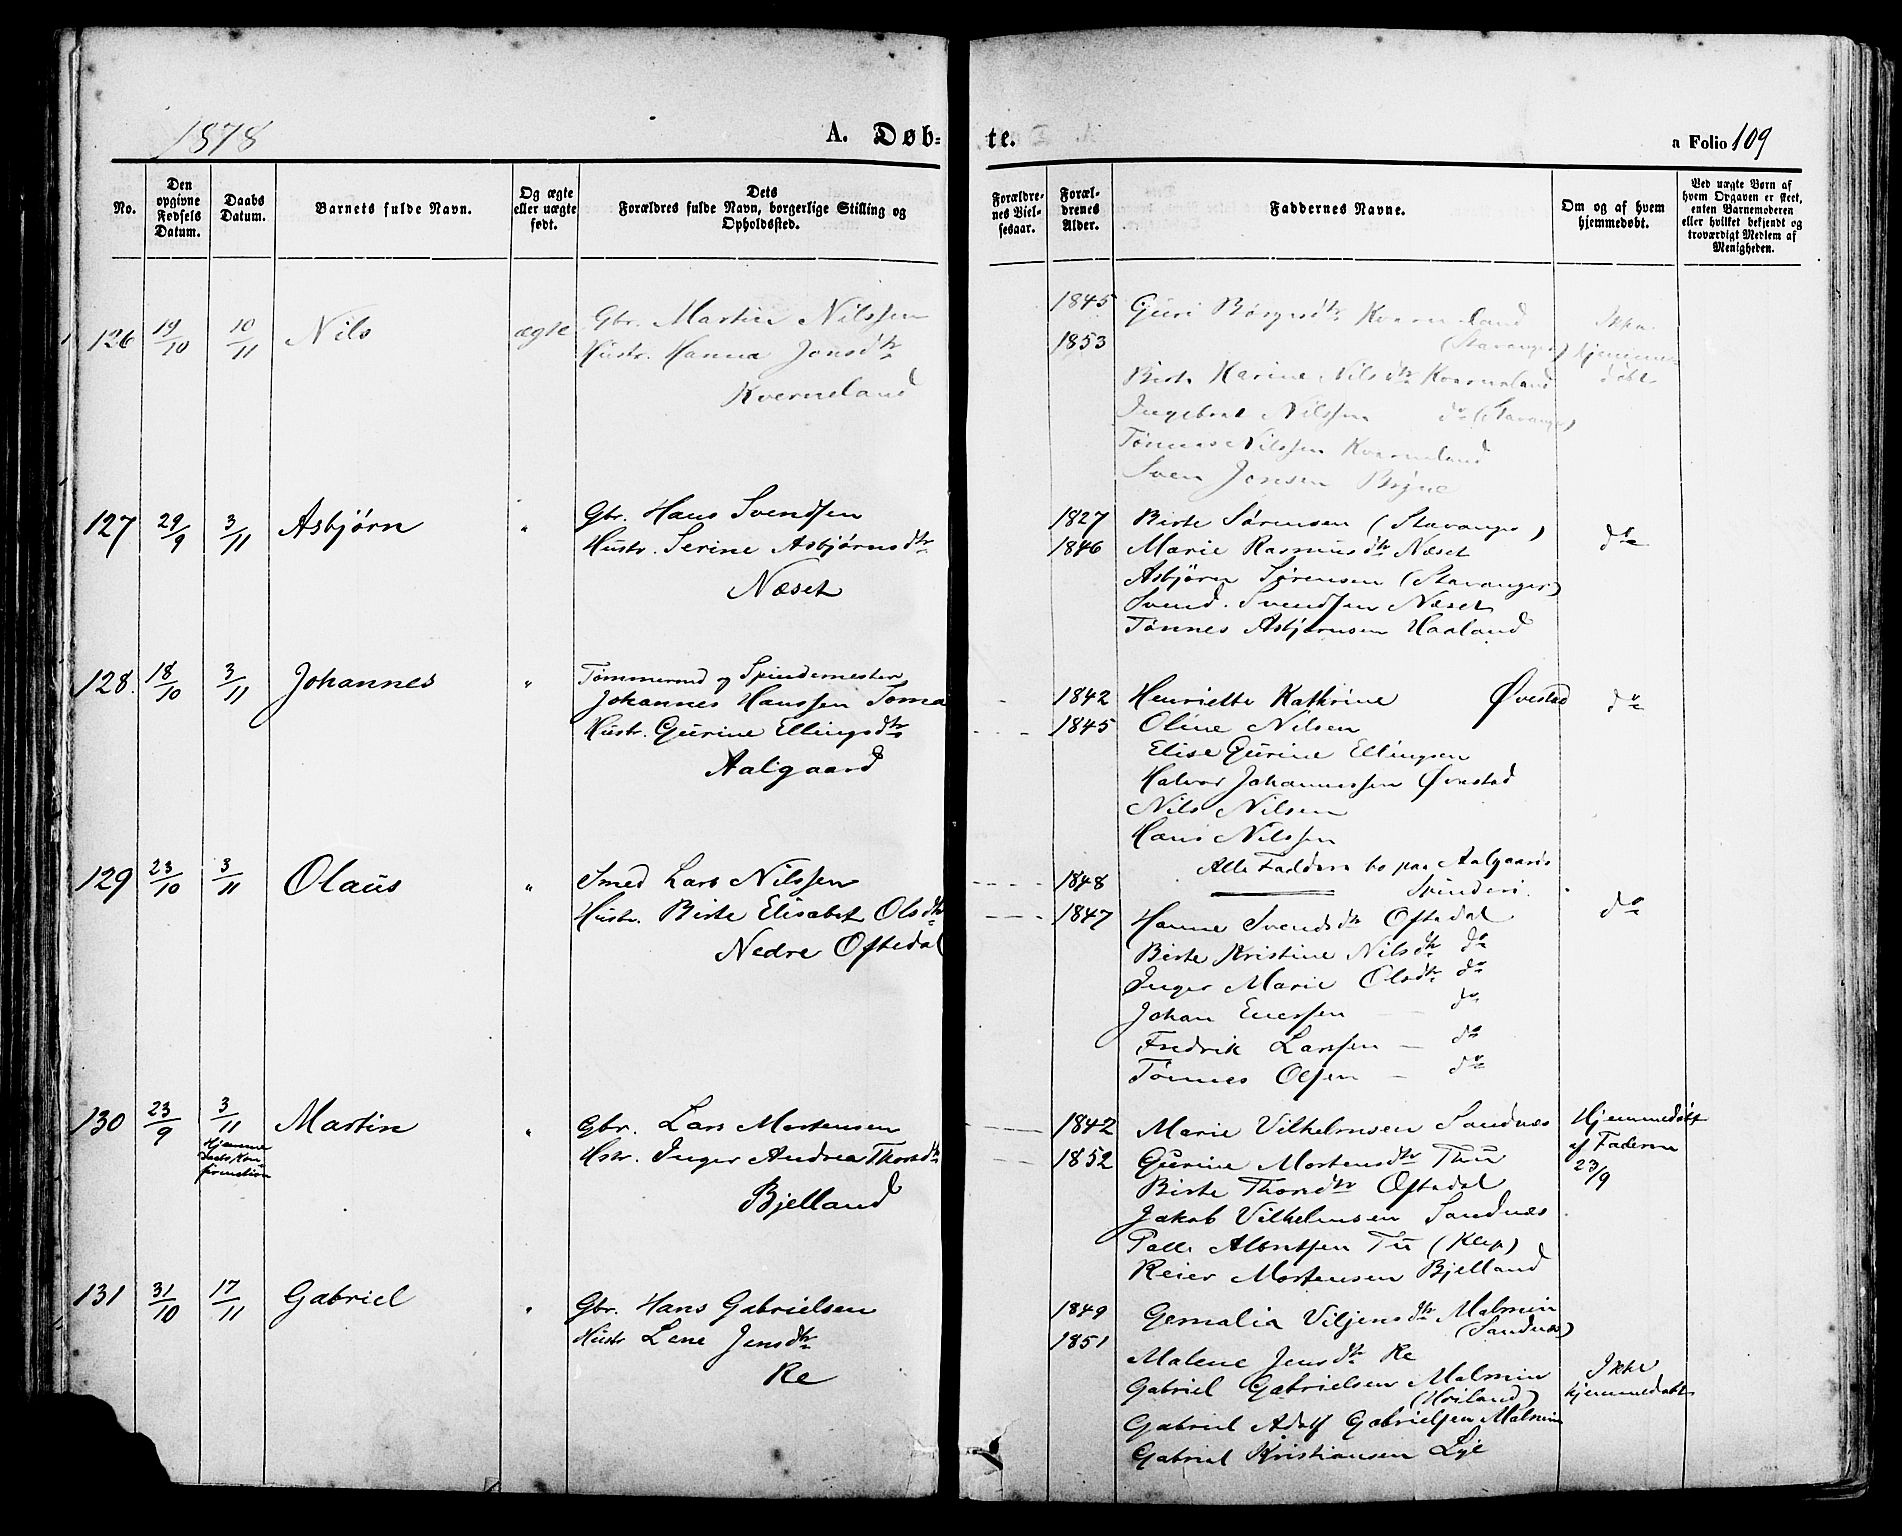 1878
A. Døb-
te.
a Folio 109
No.
Den opgivne Fødsels Datum.
Daabs Datum.
Barnets fulde Navn.
Og ægte eller uægte født.
Dets
Forældres fulde Navn, borgerlige Stilling og
Opholdssted.
Forældre-nes Viel-sesaar.
Foræl-drenes Alder.
Faddernes Navne.
Om og af hvem hjemmedøbt.
Ved uægte Børn af hvem Opgaven er skeet, enten Barnemoderen eller hvilket bekjendt og troværdigt Medlem af Menigheden.
126 19/10 10/11 Nils ægte Gbr. Martin Nilssen
Hustr. Hanna Jonsdtr
Kverneland
1845
1853
Guri Børgesdtr Kverneland
(Stavanger)
Birte Karine Nilsdtr Kverneland
Ingebret Nilssen do (Stavanger)
Tønnes Nilssen Kverneland
Sven Jonsen Bryne
Ikke
hjemme-
døbt
127 29/9 3/11 Asbjørn " Gbr. Hans Svendsen
Hustr. Serine Asbjørnsdtr
Næset
1827
1846
Birte Sørensen (Stavanger)
Marie Rasmusdtr Næset
Asbjørn Sørensen (Stavanger)
Svend Svendsen Næset
Tønnes Asbjørnsen Haaland
do
128. 18/10 3/11 Johannes " Tømmermd og Spindemester
Johannes Hanssen
Hustr. Gurine Ellingsdtr
Aalgaard
1842
1845
Henriette Kathrine Øvestad
Oline Nilsen
Elise Gurine Ellingsen
Halvor Johannessen Øvestad
Nils Nilsen
Hans Nilssen
Alle Faddere bo paa Aalgaards
Spinderi.
do
129 23/10 3/11 Olaus " Smed Lars Nilssen
Hustr. Birte Elisabet Olsdtr
Nedre Oftedal
1848
1847
Hanne Svendsdtr Oftedal
Birte Kristine Nilsdtr do
Inger Marie Olsdtr do
Johan Enersen — do
Fredrik Larssen — do
Tønnes Olsen — do
do
130 23/9 3/11 Martin " Gbr. Lars Mortensen
Hjemme
daabs Kon-
firmation
Hstr. Inger Andrea Thorsdtr
Bjelland
1842
1852
Marie Vilhelmsen Sandnæs
Gurine Mortensdtr Thu
Birte Thorsdtr Oftedal
Jakob Vilhelmsen Sandnæs
Palle Albretsen Tu (Klep)
Reier Mortensen Bjelland
Hjemmedøbt
af Faderen
23/9
131 31/10 17/11 Gabriel " Gbr. Hans Gabrielsen
Hustr Lene Jensdtr
Re
1849
1851
Gemalia Viljensdtr Malmin
(Sandnæs)
Malene Jensdtr Re
Gabriel Gabrielsen Malmin
(Høiland)
Gabriel Adolf Gabrielsen Malmin
Gabriel Kristiansen Lye
Ikke
hjemmedøbt